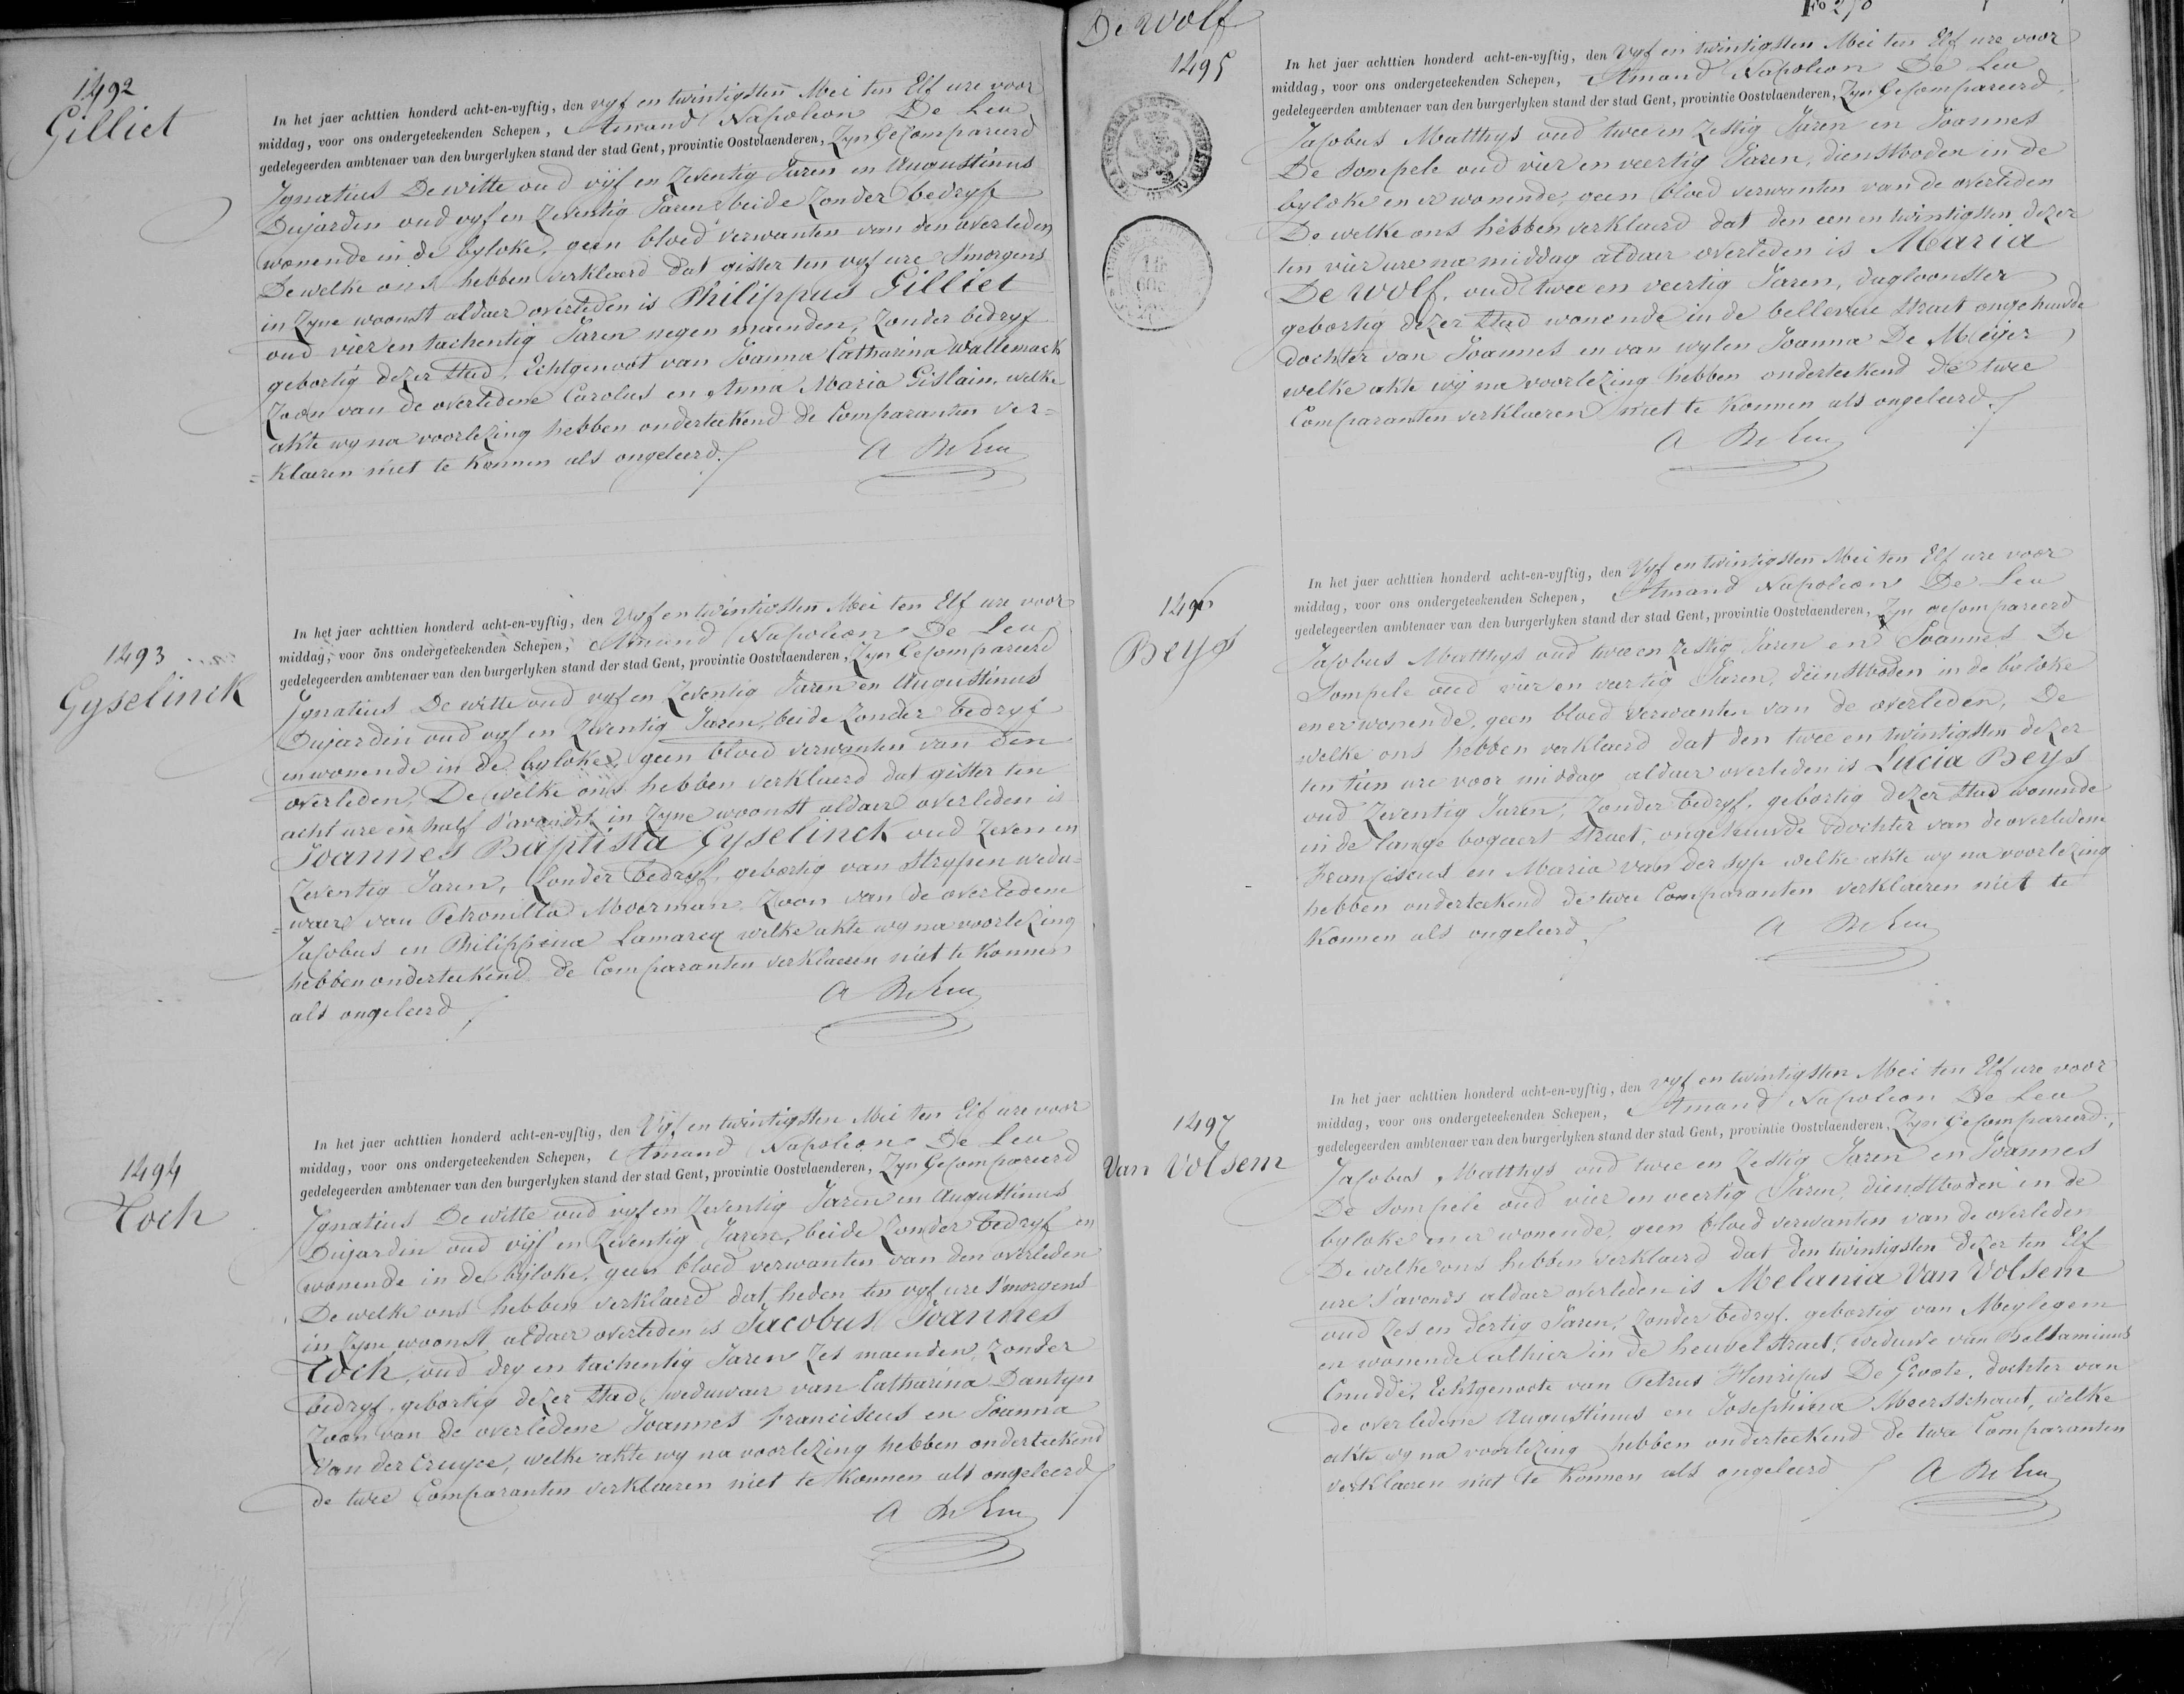 1492
Gilliet
In het jaer achttien honderd acht-en-vyftig, den vyf en twintigsten Mei ten Elf ure voor
middag, voor ons ondergeteekenden Schepen, Amand Napoleon De Leu
gedelegeerden ambtenaer van den burgerlyken stand der stad Gent, provintie Oostvlaenderen, Zyn Gecompareerd
Ignatius De witte oud vijf en Zeventig Jaren en Augustinus
Dujarden oud vyf en Zeventig Jaren beide Zonder bedryf
wonende in de byloke, geen bloed verwanten van den overleden
De welke ons hebben verklaerd dat gister ten vyf ure S'morgens
in Zyne woonst aldaer overleden is Philippus Gilliet
oud vier en tachentig Jaren negen maenden, Zonder bedryf
gebortig dezer Stad, Echtgenoot van Joanna Catharina Wallemack
Zoon van de overledene Carolus en Anna Maria Gislain, welke
akte wy na voorlezing hebben onderteekend de Comparanten ver=
=klaeren niet te konnen als ongeleerd./
A De Leu
1493
Gyselinck
In het jaer achttien honderd acht-en-vyftig, den Vyf en twintigsten Mei ten Elf ure voor
middag, voor ons ondergeteekenden Schepen, Amand Napoleon De Leu
gedelegeerden ambtenaer van den burgerlyken stand der stad Gent, provintie Oostvlaenderen, Zyn Gecompareerd
Ignatius De witte oud vyf en Zeventig Jaren en Augustinus
Dujardin oud vyf en Zeventig Jaren, beide Zonder bedryf
en wonende in de byloke, geen bloed verwanten van den
overleden, De welke ons hebben verklaerd dat gister ten
acht ure en half S'avonds in Zyne woonst aldaer overleden is
Joannes Baptista Gyselinck oud Zeven en
Zeventig Jaren, Zonder bedryf, gebortig van Strypen wedu=
=waer van Petronilla Moerman Zoon van de overledene
Jacobus en Philippina Lamarcq welke akte wy na voorlezing
hebben onderteekend de Comparanten verklaeren niet te konnen
als ongeleerd /
A De Leu
1494
Coch
In het jaer achttien honderd acht-en-vyftig, den Vijf en twintigsten Mei ten Elf ure voor
middag, voor ons ondergeteekenden Schepen, Amand Napoleon De Leu
gedelegeerden ambtenaer van den burgerlyken stand der stad Gent, provintie Oostvlaenderen, Zyn Gecompareerd
Ignatius De witte oud vyf en Zeventig Jaren en Augustinus
Dujardin oud vijf en Zeventig Jaren, beide Zonder bedryf en
wonende in de bijloke, geen bloed verwanten van den overleden
De welke ons hebben verklaerd dat heden ten vyf ure S'morgens
in Zyne woonst aldaer overleden is Jacobus Joannes
Coch, oud dry en tachentig Jaren Zes maenden, Zonder
bedryf, gebortig dezer Stad, weduwaer van Catharina Dantyn
Zoon van de overledene Joannes franciscus en Joanna
Van der Cruyce, welke akte wy na voorlezing hebben onderteekend
de twee Comparanten verklaeren niet te konnen als ongeleerd /
A De Leu
De Wolf
1495
Fo 270
In het jaer achttien honderd acht-en-vyftig, den Vyf en twintigsten Mei ten Elf ure voor
middag, voor ons ondergeteekenden Schepen, Amand Napoleon De Leu
gedelegeerden ambtenaer van den burgerlyken stand der stad Gent, provintie Oostvlaenderen, Zyn Gecompareerd,
Jacobus Matthys oud twee en Zestig Jaren en Joannes
De Sompele oud vier en veertig Jaren, dienstboden in de
byloke en er wonende, geen bloed verwanten van de overleden
De welke ons hebben verklaerd dat den een en twintigsten dezer
ten vier ure na middag aldaer overleden is Maria
De Wolf, oud twee en veertig Jaren, dagloonster
gebortig dezer Stad wonende in de bellevue Straet ongehuwde
dochter van Joannes en van wylen Joanna De Meijer
welke akte wij na voorlezing hebben onderteekend de twee
Comparanten verklaeren niet te konnen als ongeleerd./
A De Leu
1496
Beys
In het jaer achttien honderd acht-en-vyftig, den Vyf en twintigsten Mei ten Elf ure voor
middag, voor ons ondergeteekenden Schepen, Amand Napoleon De Leu
gedelegeerden ambtenaer van den burgerlyken stand der stad Gent, provintie Oostvlaenderen, Zyn gecompareerd
Jacobus Matthys oud twee en Zestig Jaren en Joannes De
Sompele oud vier en veertig Jaren, dienstboden in de byloke
en er wonende, geen bloed verwanten van de overleden, De
welke ons hebben verklaerd dat den twee en twintigsten dezer
ten tien ure voor middag aldaer overleden is Lucia Beys
oud Zeventig Jaren, Zonder bedryf, gebortig dezer Stad wonende
in de lange bogaert Straet, ongehuwde dochter van de overledene
Franciscus en Maria Van der syp welke akte wy na voorlezing
hebben onderteekend de twee Comparanten verklaeren niet te
konnen als ongeleerd /
A De Leu
1497
Van Volsem
In het jaer achttien honderd acht-en-vyftig, den vyf en twintigsten Mei ten Elf ure voor
middag, voor ons ondergeteekenden Schepen, Amand Napoleon De Leu
gedelegeerden ambtenaer van den burgerlyken stand der stad Gent, provintie Oostvlaenderen, Zyn Gecompareerd,
Jacobus Matthys oud twee en Zestig Jaren en Joannes
De Sompele oud vier en veertig Jaren, dienstboden in de
byloke en er wonende, geen bloed verwanten van de overleden
De welke ons hebben verklaerd dat den twintigsten dezer ten Elf
ure S'avonds aldaer overleden is Melania Van Volsem
oud Zes en dertig Jaren, Zonder bedryf, gebortig van Meylegem
en wonende alhier in de heuvel Straet, weduwe van Beltaminus
Cnudde, Echtgenoote van Petrus Henricus De Groote, dochter van
de overledene Augustinus en Josephina Meersschaut, welke
akte wy na voorlezing hebben onderteekend de twee Comparanten
verklaeren niet te konnen als ongeleerd /
A De Leu